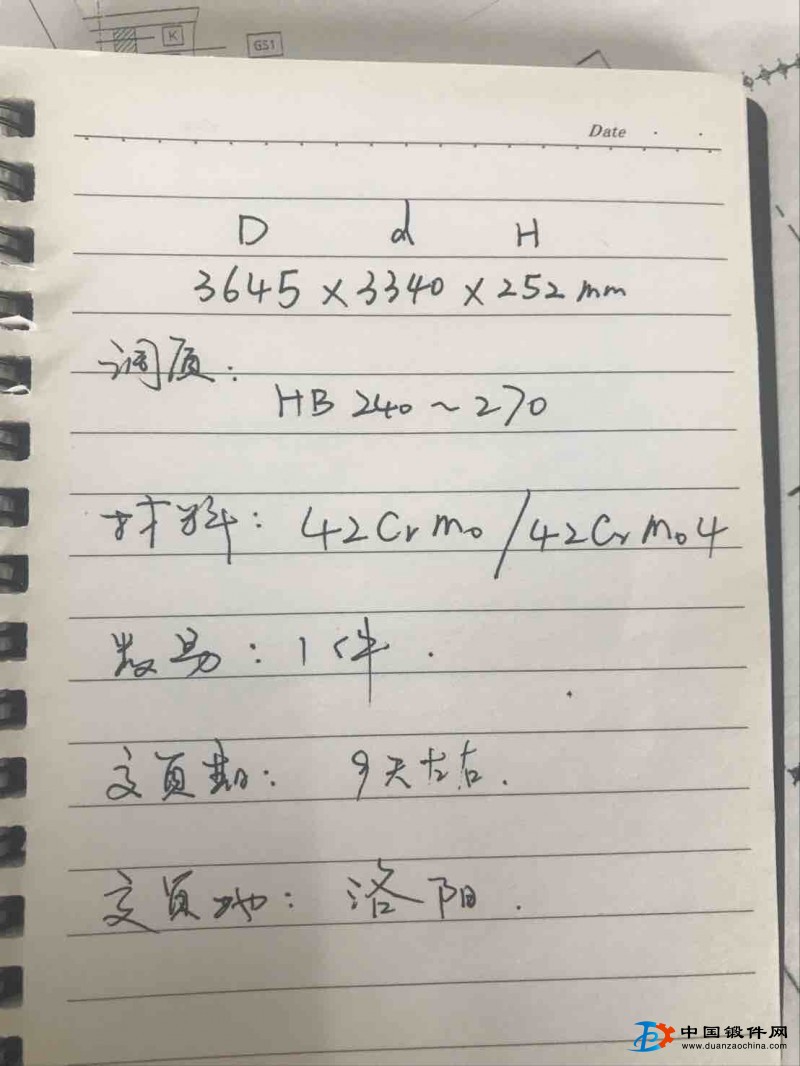 K
GS1
Date
D d H
3645 × 3340 × 252 mm
调质:
HB 240 ~ 270
材料: 42CrMo / 42CrMo4
数量: 1件.
交货期: 9天左右.
交货地: 洛阳.
中国锻件网
www.duanzaochina.com